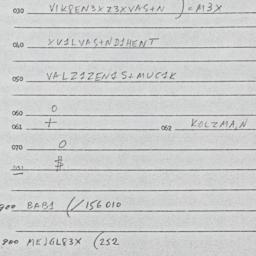 030 VIKPEN3XZ3XVAS+N ) = M3X
040 XV1LVAS+ND1HENT
050 VALZ1ZEN1S+MUC1K
060 O
061 + 062 KOLZMA,N
070 O
#
900 BAB1 (/156010
900 MEJGL83X (252